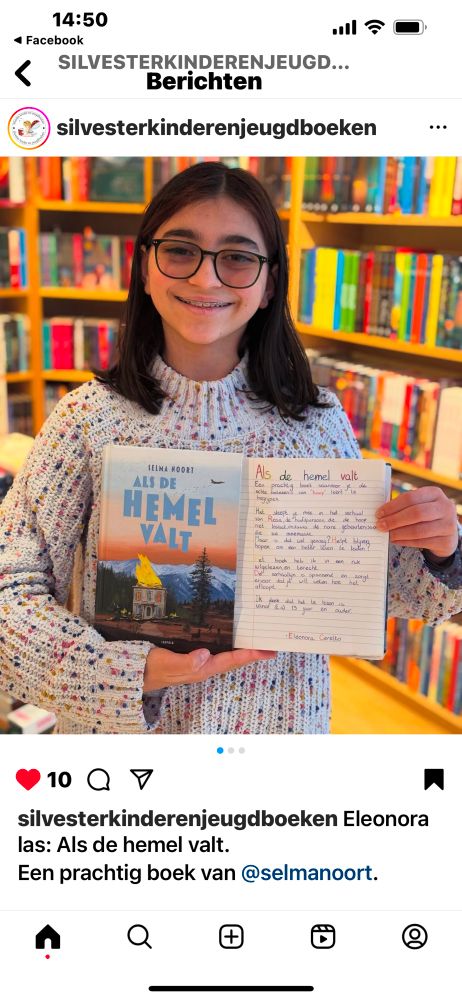 14:50
Facebook
SILVESTERKINDERENJEUGD...
Berichten
silvesterkinderenjeugdboeken
SELMA NOORT
ALS DE
HEMEL
VALT
Als de hemel valt
Een prachtig boek waardoor je de
echte betekenis van "hoop" leert te
begrijpen.
Het sleept je mee in het verhaal
van de hoofdpersoon die de hoop
niet de nare gebeurtenissen
die ze meemaakt.
Maar is dat wel genoeg? Helpt blijven
hopen om een beter leven te leiden?
boek heb ik in een ruk
uitgelezen en terecht.
is spannend en zorgt
ervoor dat je wil weten hoe het
afloopt.
Ik denk dat het te lezen is
vanaf 13 jaar en ouder.
-Eleonora
10
silvesterkinderenjeugdboeken Eleonora
las: Als de hemel valt.
Een prachtig boek van @selmanoort.